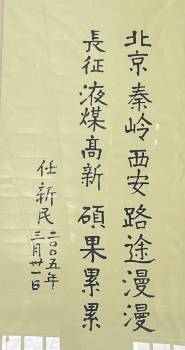 北京秦岭西安路途漫漫
長征液煤高新碩果累累
任新民
二〇〇五年
三月卅一日